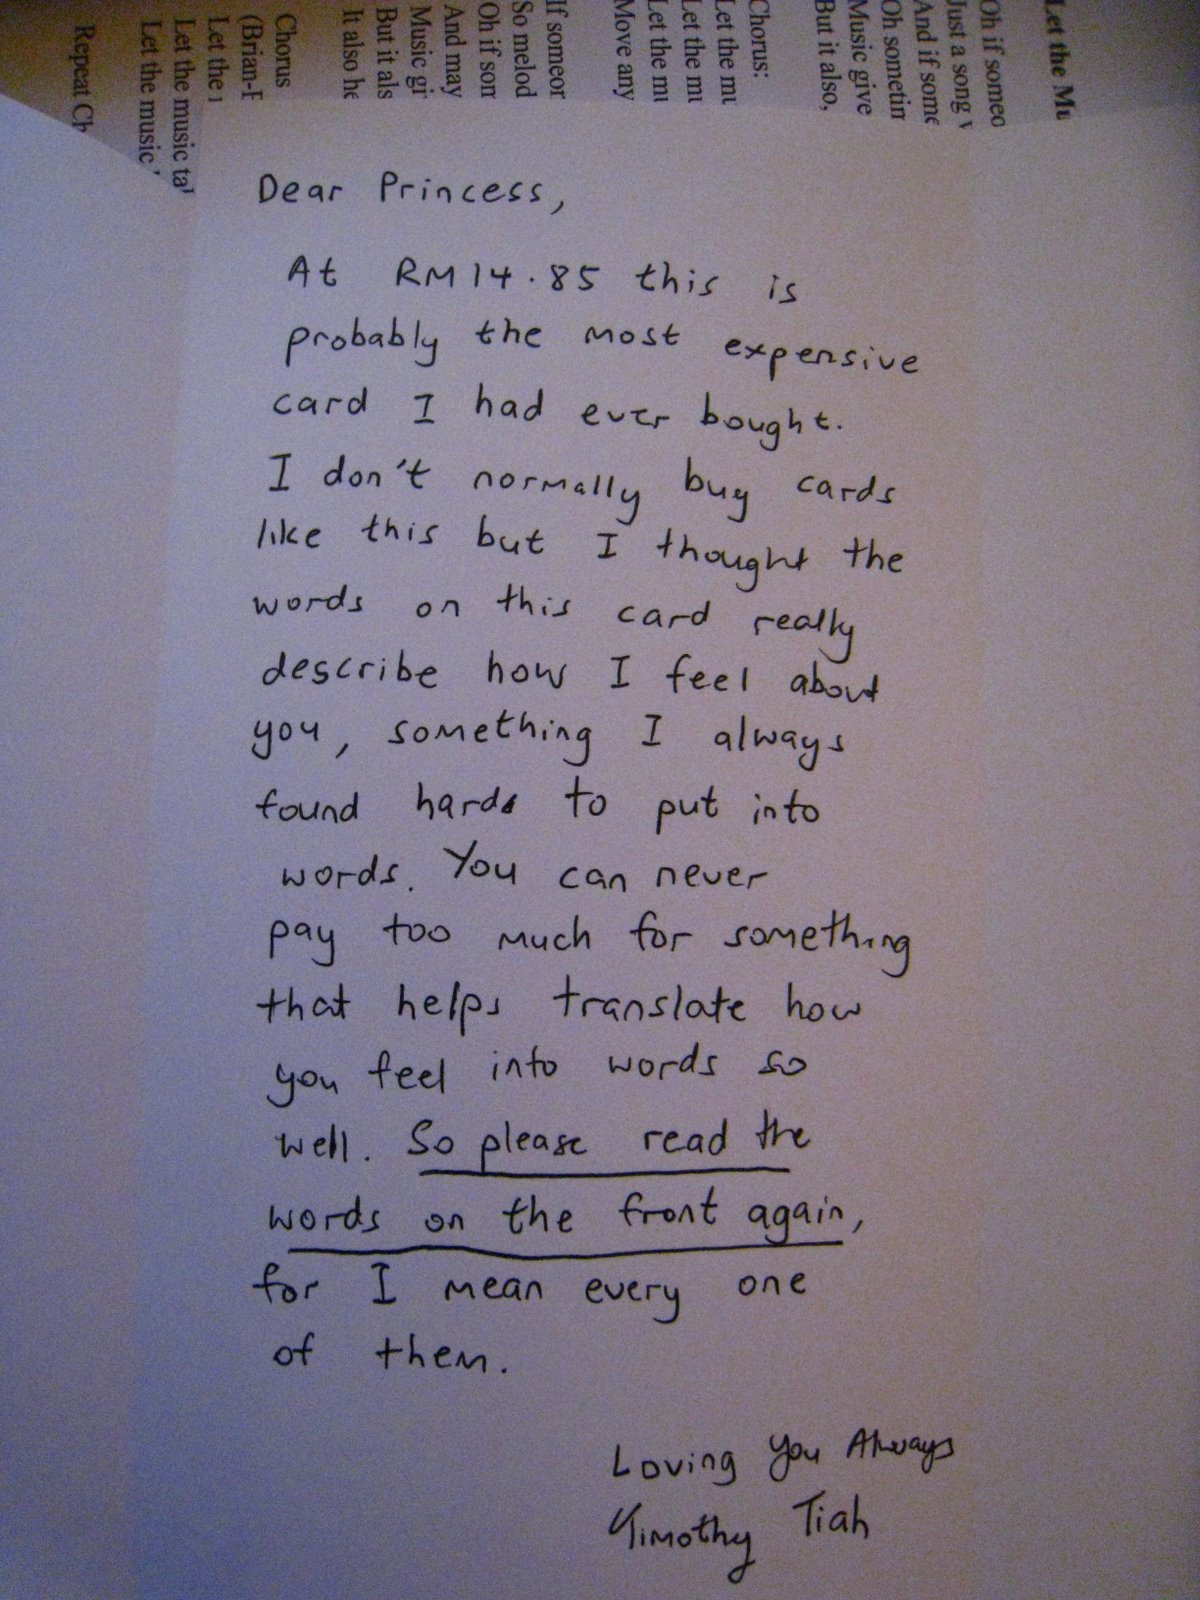 Let the
Oh if someo
Just a song
And if some
Oh sometim
Music give
But it also,
Chorus:
Let the mu
Let the mu
Let the mu
Move any
If someor
So melod
Oh if som
And may
Music gi
But it als
It also he
Chorus
(Brian-
Let the
Let the music tal
Let the music
Repeat Ch
Dear Princess,
At RM14.85 this is
probably the most expensive
card I had ever bought.
I don't normally buy cards
like this but I thought the
words on this card really
describe how I feel about
you, something I always
found hard to put into
words. You can never
pay too much for something
that helps translate how
you feel into words so
well. So please read the
words on the front again,
for I mean every one
of them.
Loving You Always
Timothy Tiah